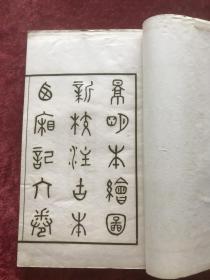 景明本繪圖
新校注古本
西廂記六卷